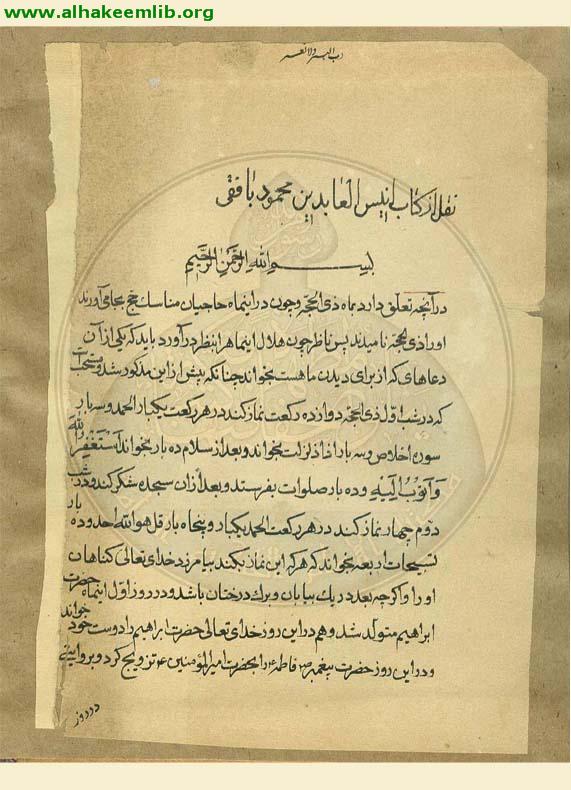 www.alhakeemlib.org
رب الیسر ولا تعسر
نقل از کتاب انیس العابدین محمود بافقی
بسم الله الرحمن الرحیم
در آنچه تعلق دارد بماه ذی الحجه و چون در اینماه حاجیان مناسک حج بجامی آورند
او را ذی الحجه نامیدند پس ناظر چون هلال اینماه را بنظر در آورد باید که یکی از آن
دعاهای که از برای دیدن ماهست بخواند چنانکه پیش از این مذکور شد و مستحب است
که در شب اول ذی الحجه دوازده رکعت نماز کند در هر رکعت یکبار الحمد و سه بار
سوره اخلاص و سه بار اذا زلزلت بخواند و بعد از سلام ده بار بخواند استغفر الله
و اتوب الیه و ده بار صلوات بفرستد و بعد از آن سجده شکر کند و در شب
دوم چهار نماز کند در هر رکعت الحمد یکبار و پنجاه بار قل هو الله احد و ده بار
تسبیحات اربعه بخواند که هر که این نماز بکند بیامرزد خدای تعالی گناهان
او را و اگر چه بعدد ریک بیابان و برک درختان باشد و در روز اول اینماه حضرت
ابراهیم متولد شد و هم در این روز خدای تعالی حضرت ابراهیم را دوست خود خواند
و در این روز حضرت پیغمبر ص فاطمه ع را بحضرت امیر المؤمنین ع تزویج کرد و بروایتی
در روز